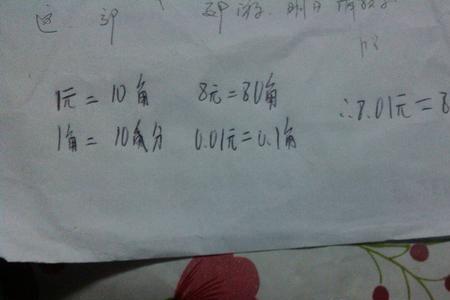 这 郊 郊游
1元 = 10角 8元 = 80角 ∴8.01元 = 8
1角 = 10分 0.01元 = 0.1角